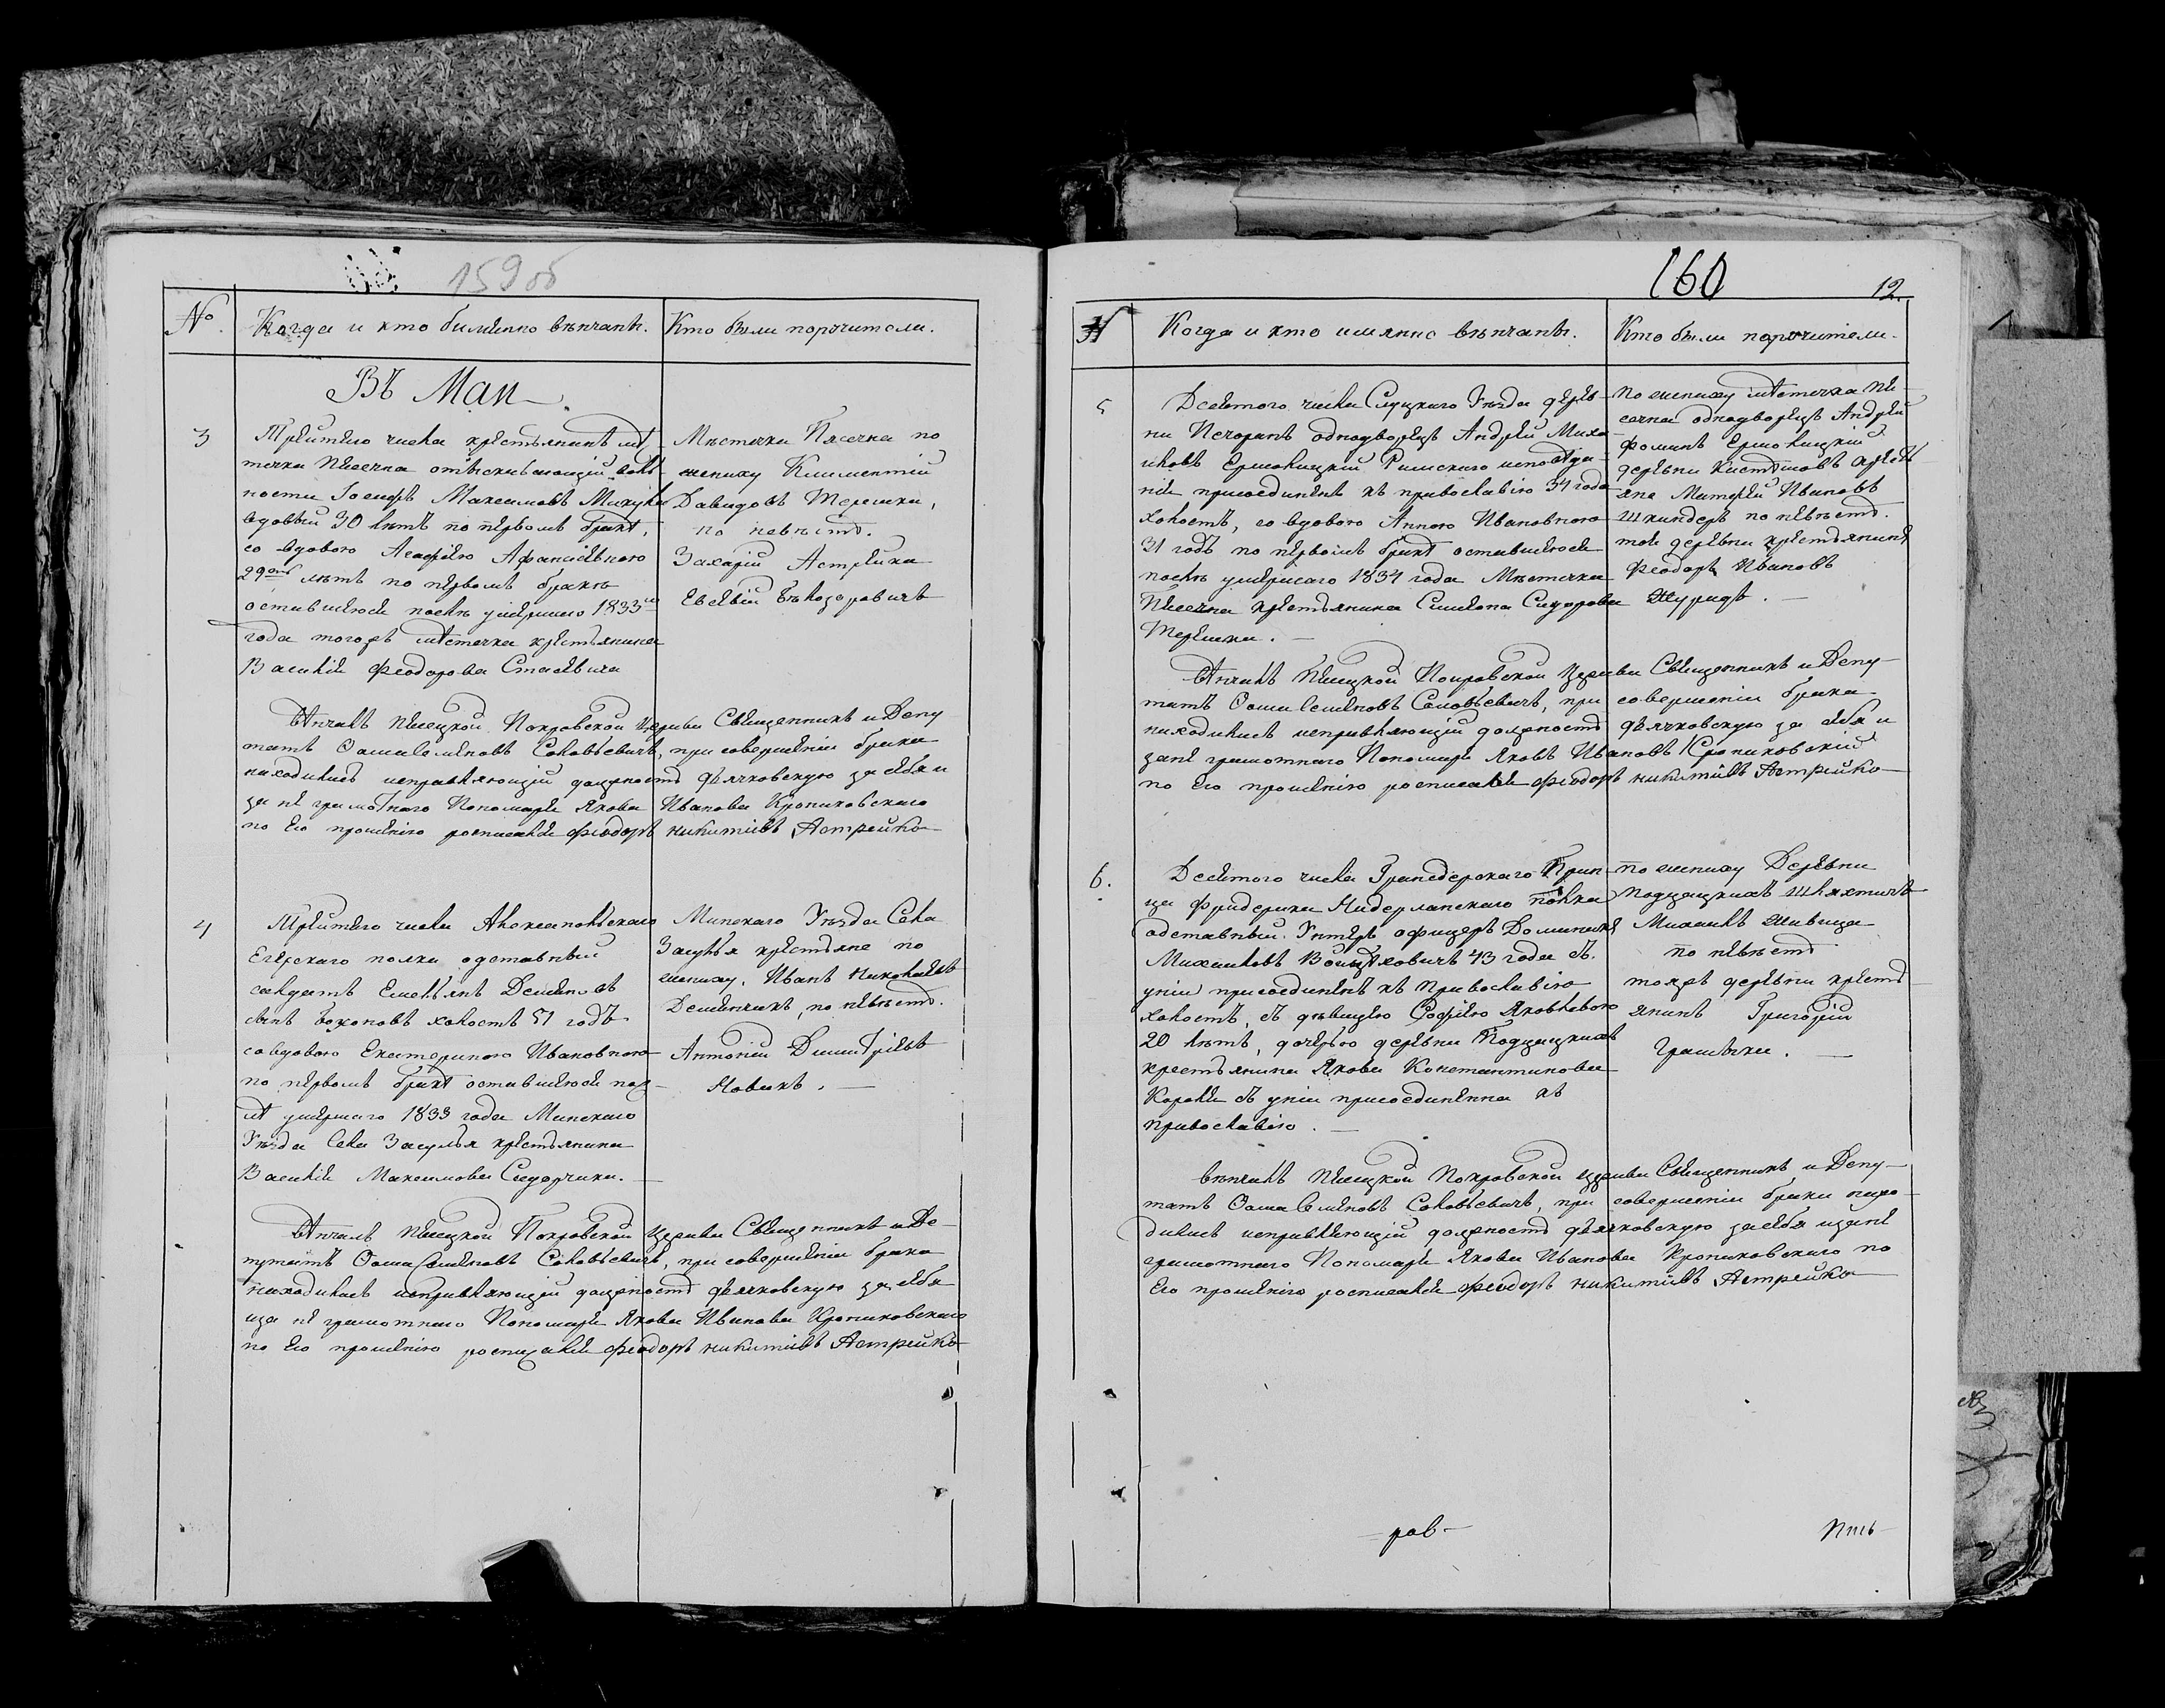 159 об
№. Когда и кто бимянно вѣнчанъ. Кто были поручители.
Въ Маи
3
Третяго числа крестьянинъ мѣ
течка Песечна
ности Іосифъ Максимовъ Микула
вдовый 30 лѣтъ по первомъ бракѣ,
со вдовою Агафіею Афанасіевною
29 лѣтъ по первомъ бракѣ
оставшеюся послѣ умершаго 1833го
года тогожъ мѣстечка крестьянина
Василія Феодорова Стасевича
Мѣстечка Песечна по
жениху Климентій
Давидовъ Терешка,
по невѣстѣ.
Захарій Астрейка
Евсевій Бѣлозоровичъ
Вѣнчалъ Песецкой Покровской Церкви Священникъ и Депу
татъ Фома Семеновъ Соловьевичъ, при совершеніи брака
находились исправляющій должность дьячковскую за себя и
за не грамотнаго Пономаря Якова Иванова Кропиковскаго
по его прошенію росписался Феодоръ Никитинъ Астрейко
4
Третяго числа Алексапольскаго
Егерскаго полка одставный
салдатъ Емельянъ Деменовъ
сынъ холостъ 51 годъ
со вдовою Екатериною Ивановною
по первомъ бракѣ оставшеюся пос
лѣ умершаго 1833 года Минскаго
Уѣзда Села Засулья крестьянина
Василія Максимова Сидорчика.
Минскаго Уѣзда Села
Засулья крестьяне по
жениху, Иванъ Николаевъ
Деменчикъ, по невѣстѣ.
Антоній Димитріевъ
Новикъ.
Вѣнчалъ Песецкой Покровской Церкви Священникъ и Де
путатъ Фома Семеновъ Соловьевичъ, при совершеніи брака
находились исправляющій должность дьячковскую за себя
и за не грамотнаго Пономаря Якова Иванова Кропиковскаго
по его прошенію росписался Феодоръ Никитинъ Астрейко
160 12.
Когда и кто имянно вѣнчанъ. Кто были поручители.
5
Десятого числа Слуцкаго Уѣзда дерев
ни Печоранъ однодворецъ Андрей Миха
иловъ Ермолицкій Римскаго исповѣда
нія присоединенъ къ православію 34 года
холостъ, со вдовою Анною Ивановною
31 годъ по первомъ бракѣ оставшеюся
послѣ умершаго 1834 года Мѣстечка
Песечна крестьянина Симеона Сидорова
Терешки.
По жениху мѣстечка Пе
сечна однодворецъ Андрей
Фоминъ Ермолицкій
деревни крестья
яне Матфей Ивановъ
Шкиндеръ по невѣстѣ.
той деревни крестьянинъ
Феодоръ Ивановъ
Журидъ.
Вѣнчалъ Песецкой Покровской Церкви Священникъ и Депу
татъ Фома Семеновъ Соловьевичъ, при совершеніи брака
находились исправляющій должность дьячковскую за себя и
зане грамотнаго Пономаря Яковъ Ивановъ Кропиковскій
по его прошенію росписался Феодоръ Никитинъ Астрейко
6.
Десятого числа Гранодерскаго Прин
ца Фридерика Нидерланскаго полка
одставный Унтеръ офицеръ Доминикъ
Михаиловъ Войцѣховичъ 43 года съ
уніи присоединенъ къ Православію
холостъ, съ дѣвицею Софіею Яковлевою
20 лѣтъ, дочерью деревни Подзацкихъ
крестьянина Якова Константинова
Короля съ уніи присоединенна къ
православію.
По жениху Деревни
Подзацкихъ Шляхтичъ
Михаилъ Живица
по невѣстѣ
тоежъ деревни крестъ
янинъ Григорій
Грамѣка.
Вѣнчалъ Песецкой Покровской церкви Священникъ и Депу
татъ Фома Семеновъ Соловьевичъ, при совершеніи брака нахо
дились исправляющій должность дьячковскую за себя и зане
грамотнаго Пономаря Якова Иванова Кропиковскаго по
Его прошенію росписался Феодоръ Никитинъ Астрейко